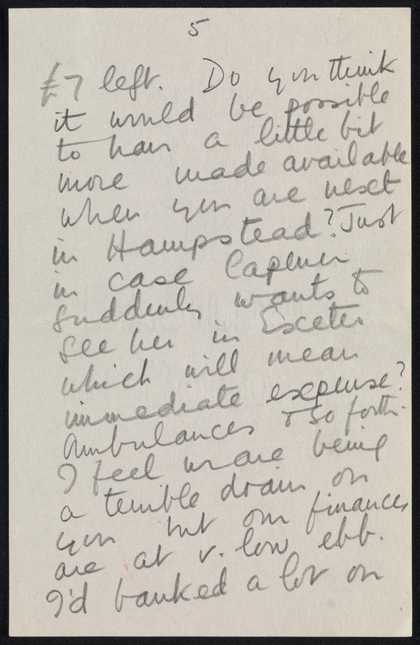 5
£7 left. Do you think
it would be possible
to have a little bit
more made available
when you are next
in Hampstead? Just
in case Capener
suddenly wants to
see her in Exeter
which will mean
immediate expense?
Ambulances & so forth.
I feel we are being
a terrible drain on
you but our finances
are at v. low ebb.
I'd banked a lot on